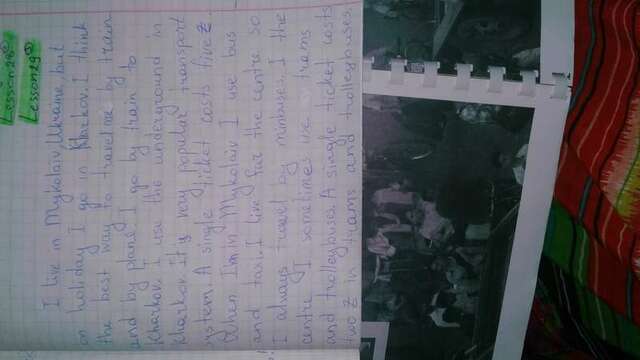 Lesson 28
Lesson 29
I live in Mykolaiv, Ukraine but
on holiday I go in Kharkov. I think
the best way to travel me by train
and by plane. I go by train to
Kharkov. I use the underground in
Kharkov. It's very popular transport
system. A single ticket costs five ₴.
When I'm in Mykolaiv I use bus
and taxi. I live far the centre so
I always travel by minibuses. I the
centre I sometimes use trams
and trolleybuses. A single ticket costs
two ₴ in trams and trolleybuses.